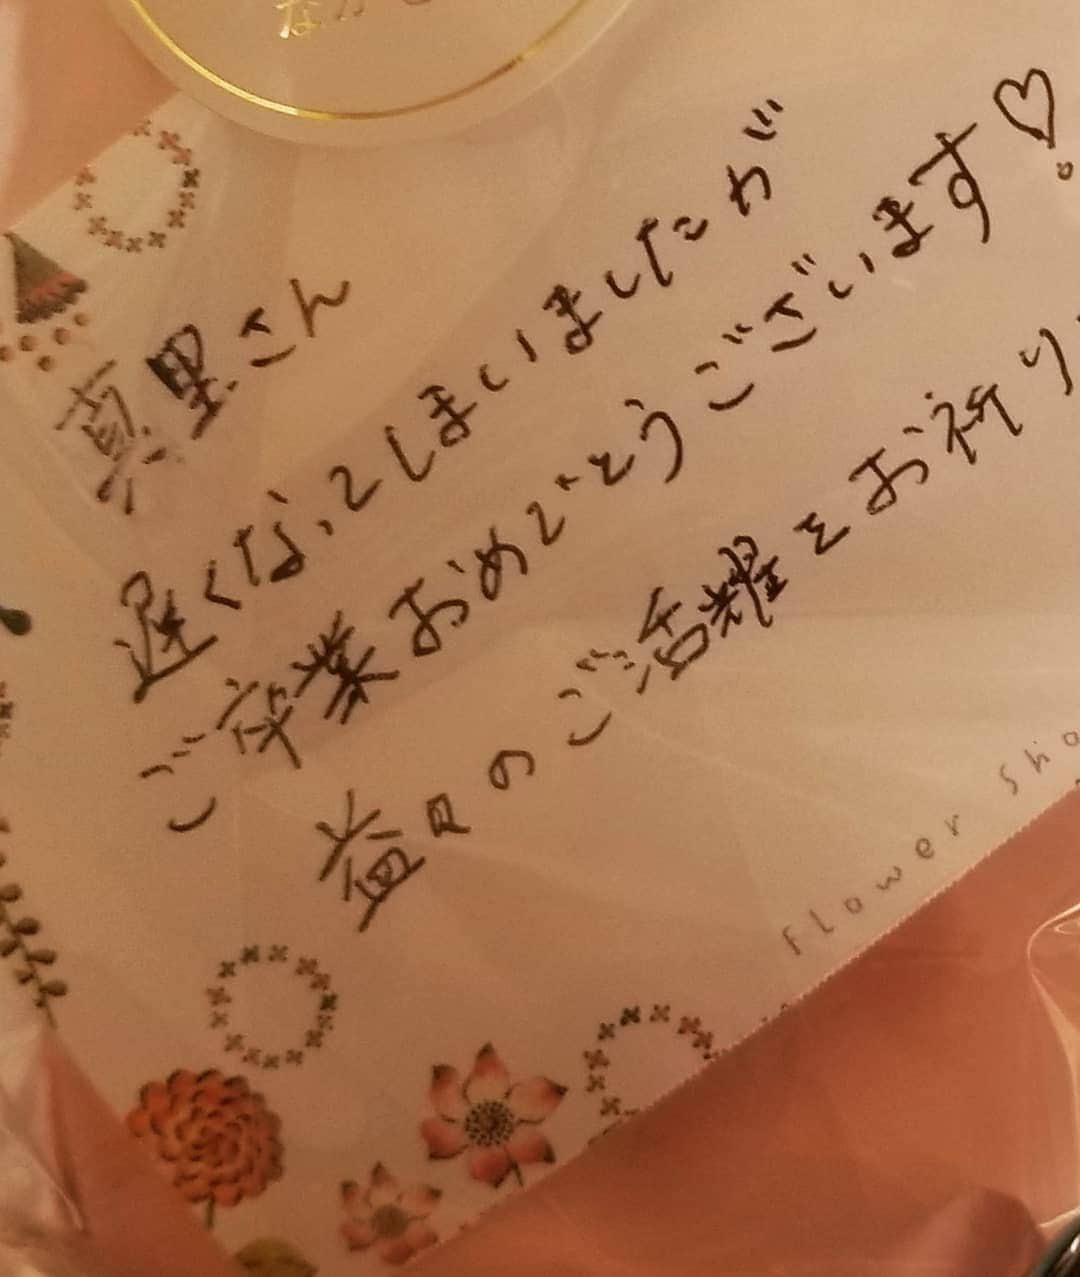 真里さん
遅くなってしまいましたが
ご卒業おめでとうございます♡。
益々のご活耀をお祈り
Flower Sho